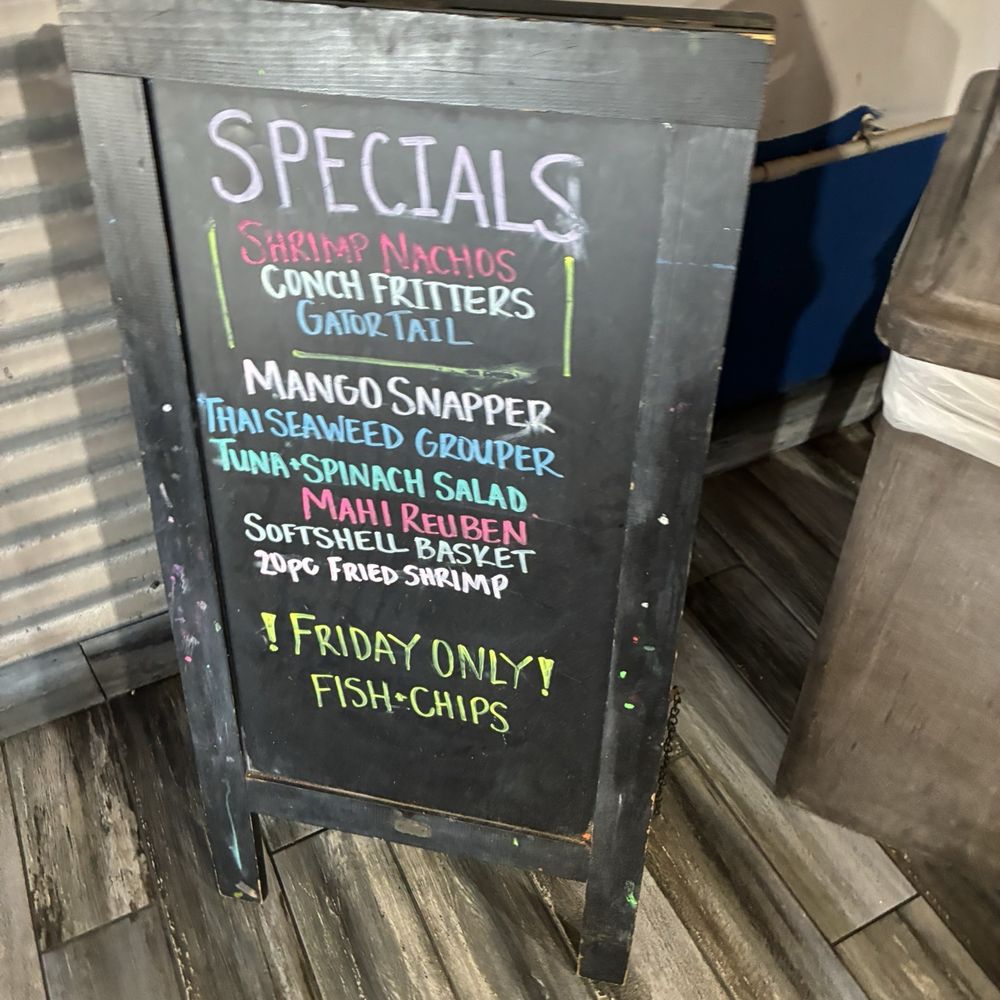 SPECIALS
SHRIMP NACHOS
CONCH FRITTERS
GATOR TAIL
MANGO SNAPPER
THAI SEAWEED GROUPER
TUNA+SPINACH SALAD
MAHI REUBEN
SOFTSHELL BASKET
20PC FRIED SHRIMP
! FRIDAY ONLY!
FISH+CHIPS